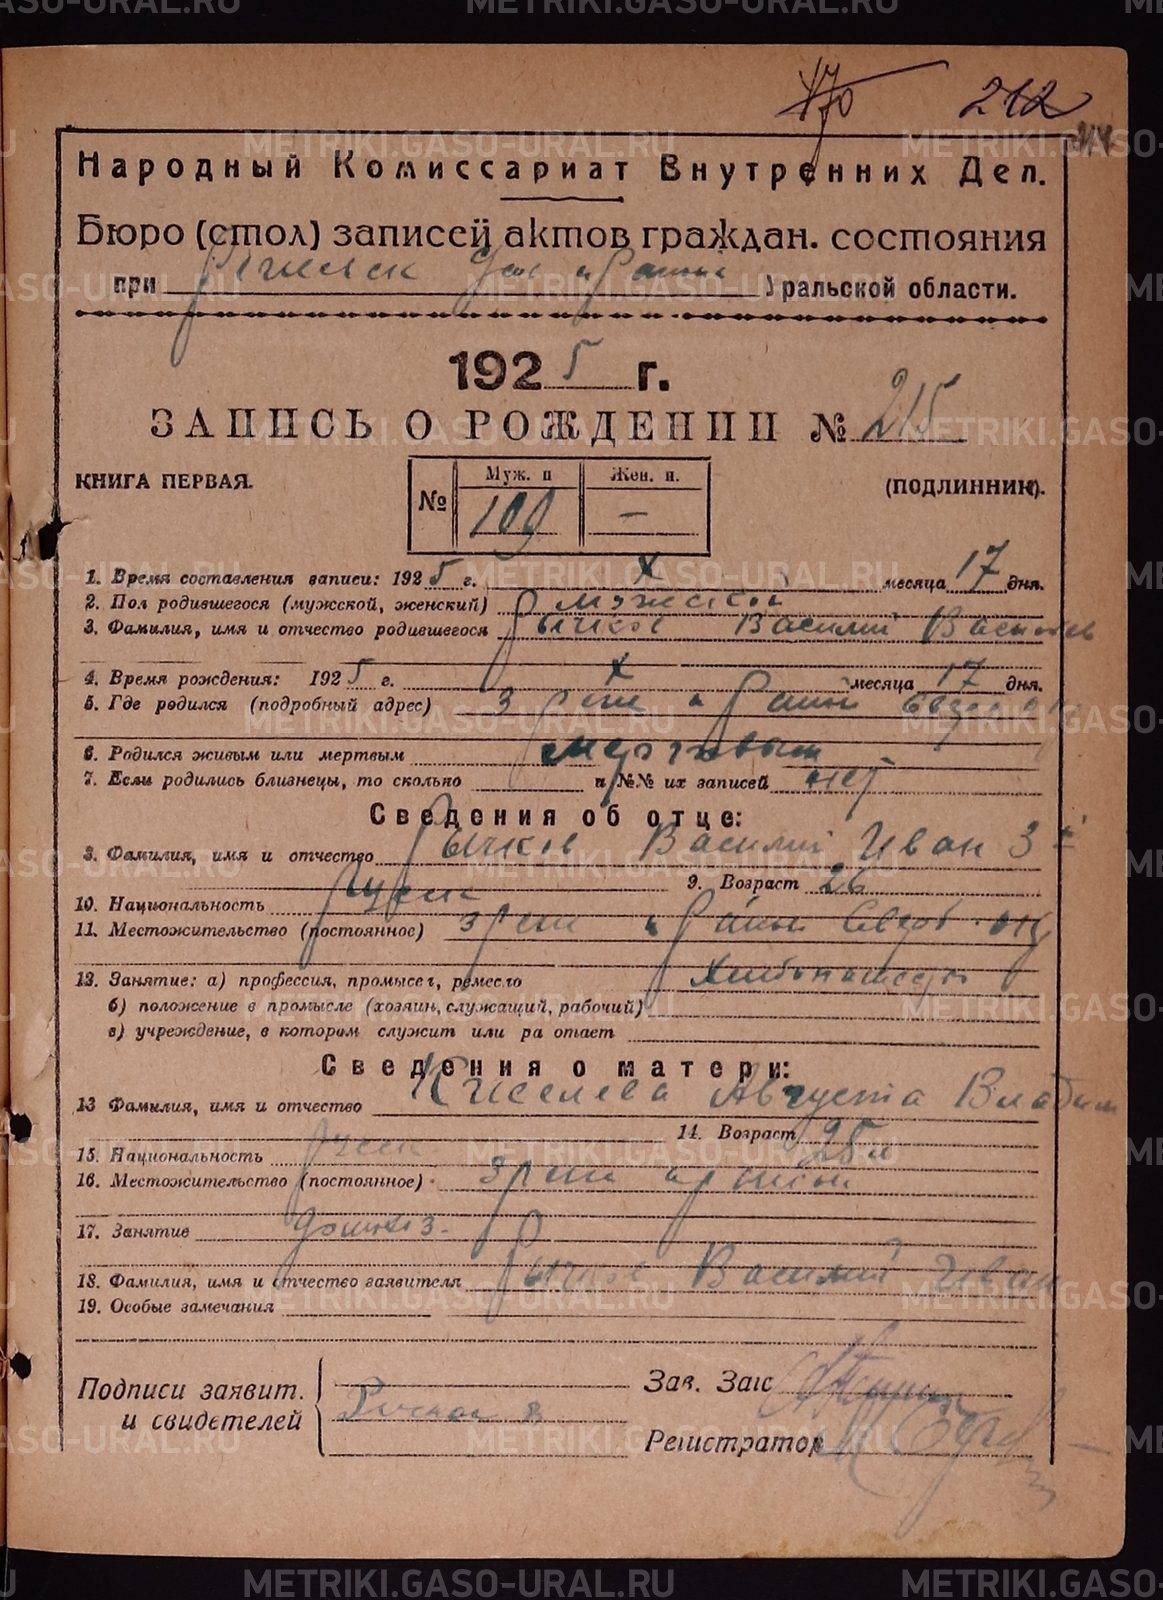 METRIKI.GASO-URAL.RU
170 212
214
Народный Комиссариат Внутренних Дел.
Бюро (стол) записей актов граждан. состояния
при Уральской области.
1925 г.
ЗАПИСЬ О РОЖДЕНИИ № 215
КНИГА ПЕРВАЯ. (ПОДЛИННИК).
№ Муж. п Жен. п.
109 —
1. Время составления записи: 1925 г. X месяца 17 дня.
2. Пол родившегося (мужской, женский) мужской
3. Фамилия, имя и отчество родившегося Рычков Василий Васильев
4. Время рождения: 1925 г. X месяца 17 дня.
5. Где родился (подробный адрес)
6. Родился живым или мертвым
7. Если родились близнецы, то сколько и №№ их записей нет
Сведения об отце:
8. Фамилия, имя и отчество Рычков Василий Иван 3й
9. Возраст 26
10. Национальность Русск
11. Местожительство (постоянное)
12. Занятие: а) профессия, промысел, ремесло Хлебопашец
б) положение в промысле (хозяин, служащий, рабочий)
в) учреждение, в котором служит или ра отает
Сведения о матери:
13 Фамилия, имя и отчество Киселева Августа Владим
14. Возраст 25 л
15. Национальность Русск
16. Местожительство (постоянное)
17. Занятие домохоз.
18. Фамилия, имя и отчество заявителя Рычков Василий Иван
19. Особые замечания
Подписи заявит. Зав. Загс
и свидетелей Рычков В
Регистратор
METRIKI.GASO-URAL.RU